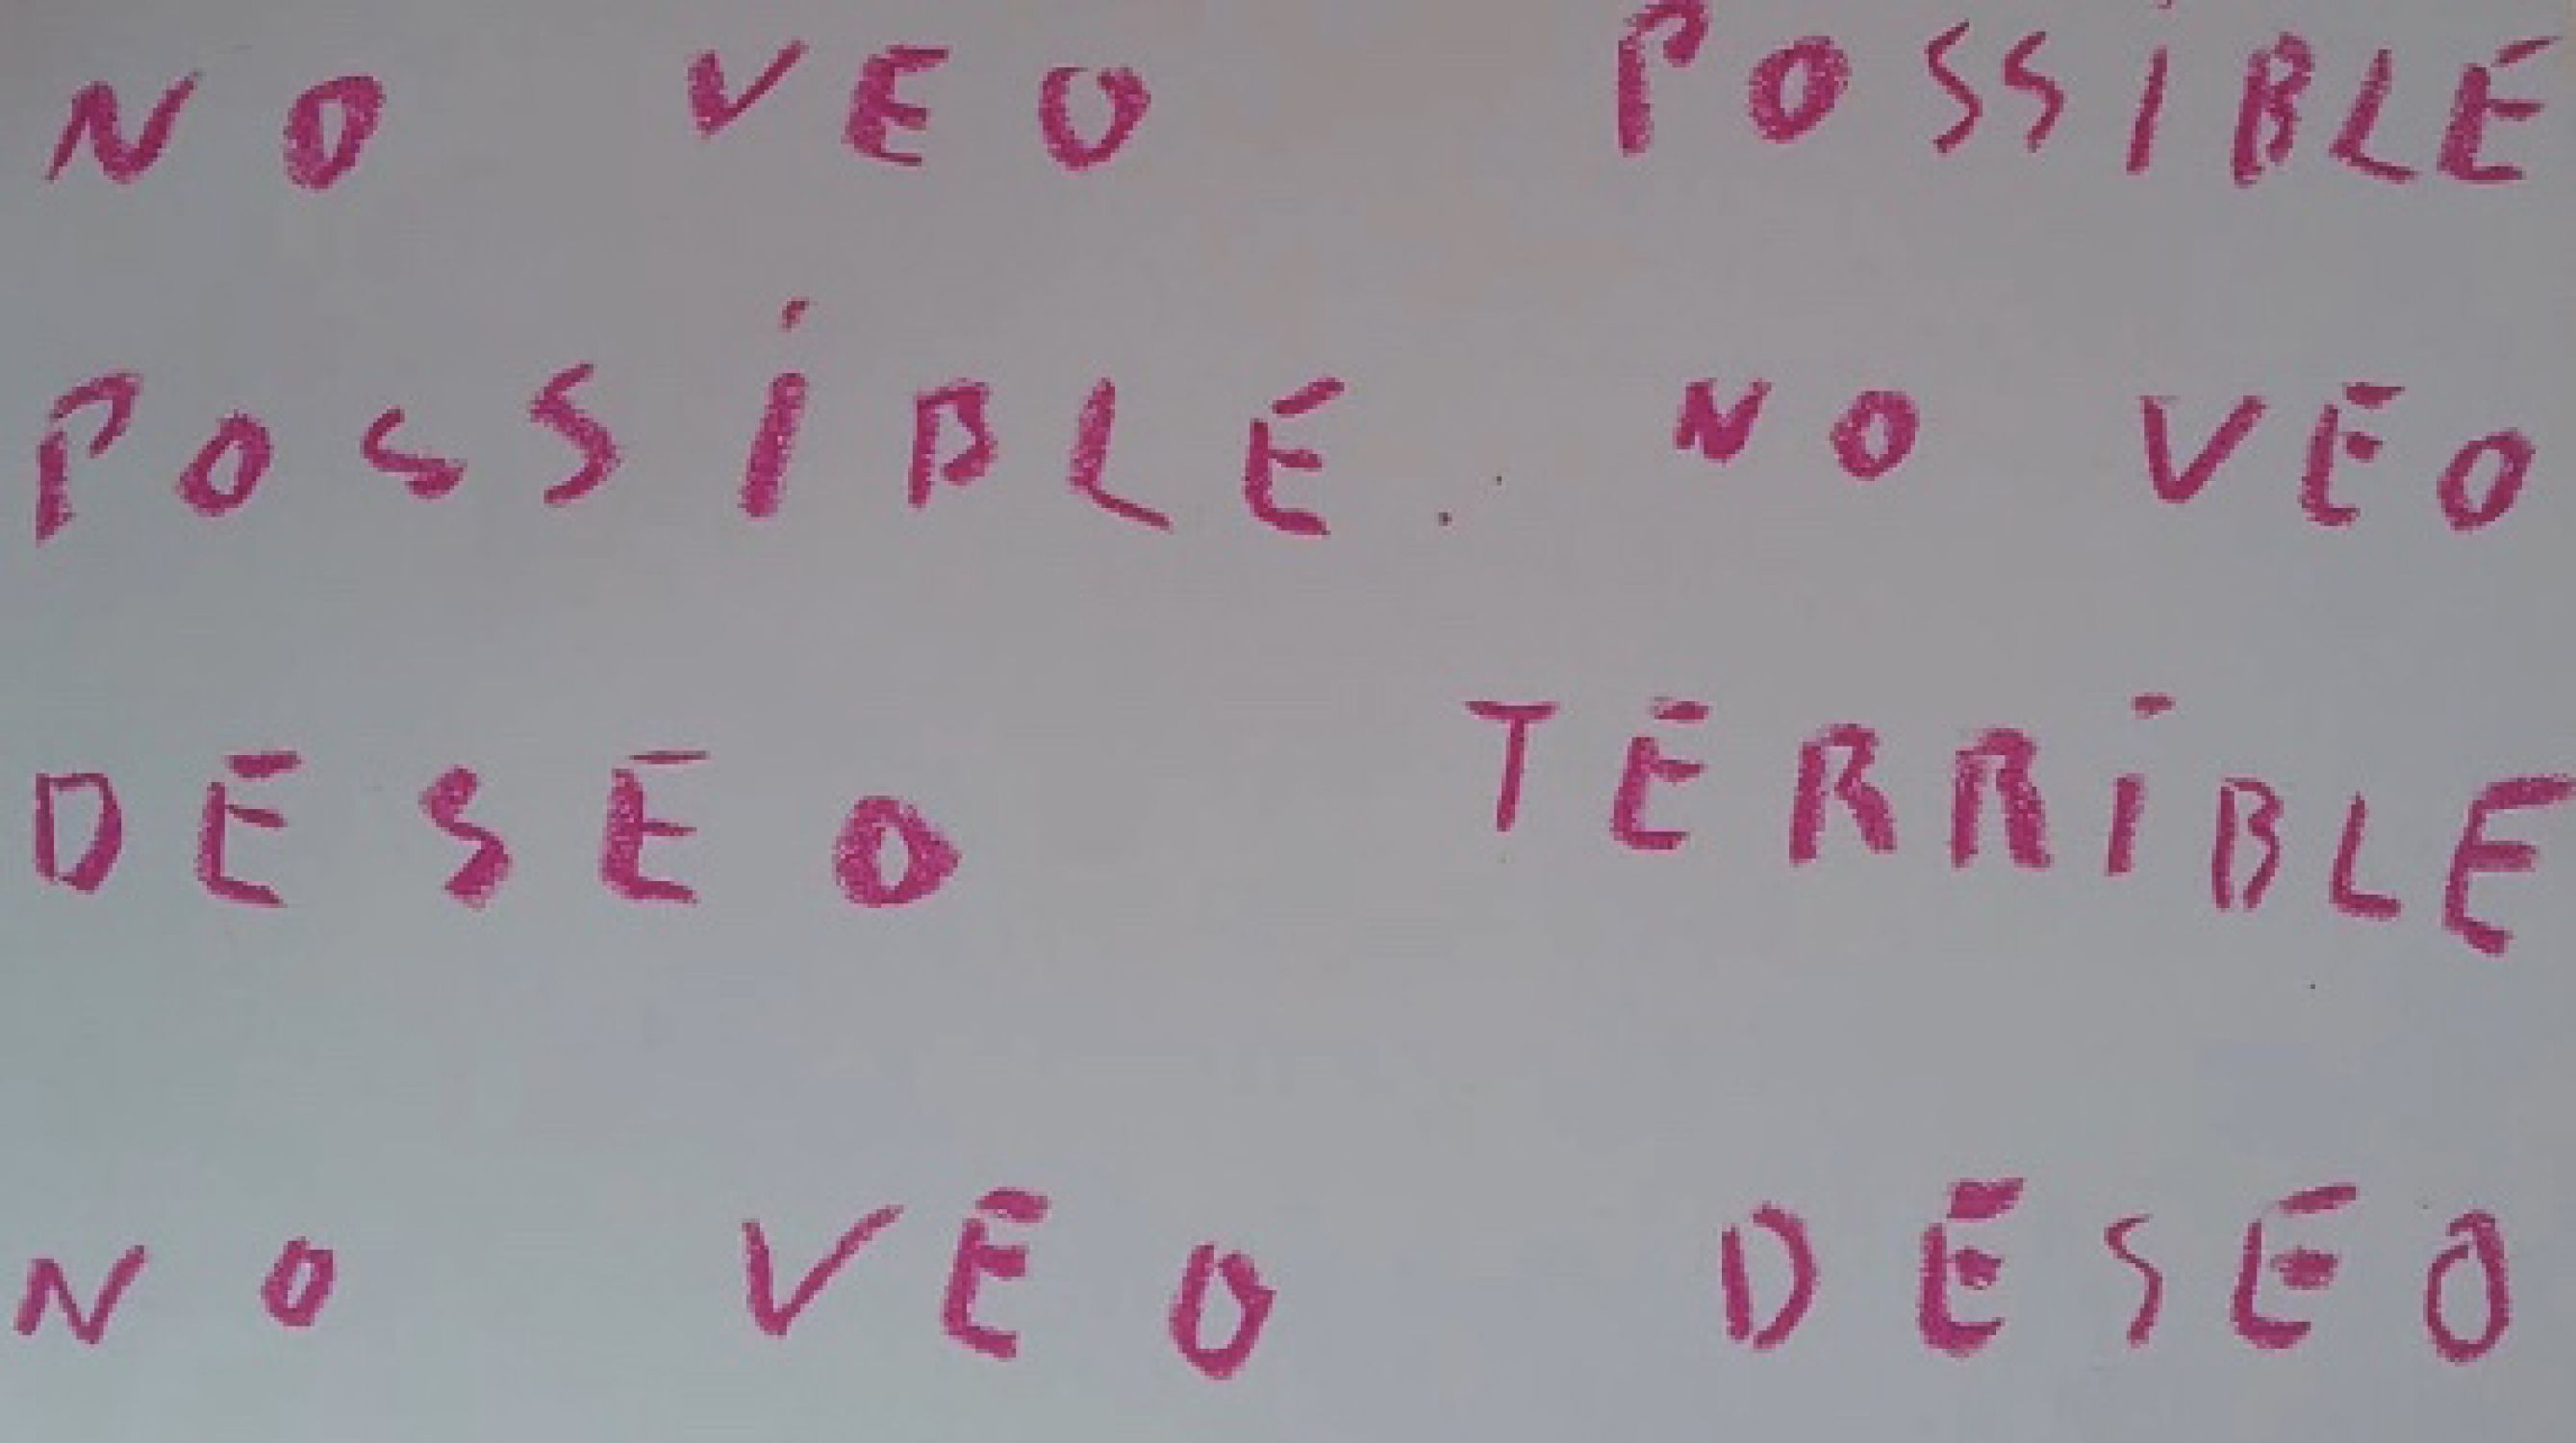 NO VEO POSSIBLE
POSSIBLE. NO VEO
DESEO TERRIBLE
NO VEO DESEO